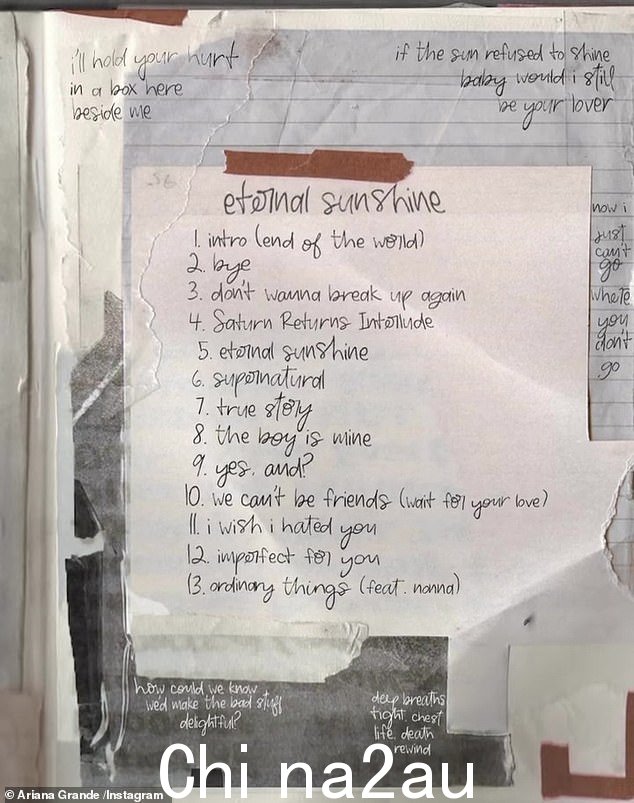 i'll hold your hurt
in a box here
beside me
if the sun refused to shine
baby would i still
be your lover
eternal sunshine
1. intro (end of the world)
2. bye
3. don't wanna break up again
4. Saturn Returns Interlude
5. eternal sunshine
6. supernatural
7. true story
8. the boy is mine
9. yes, and?
10. we can't be friends (wait for your love)
11. i wish i hated you
12. imperfect for you
13. ordinary things (feat. nonna)
now i
just
can't
go
where
you
don't
go
how could we know
we'd make the bad stuff
delightful?
deep breaths
tight chest
life, death
rewind
Chi na2au
© Ariana Grande /Instagram